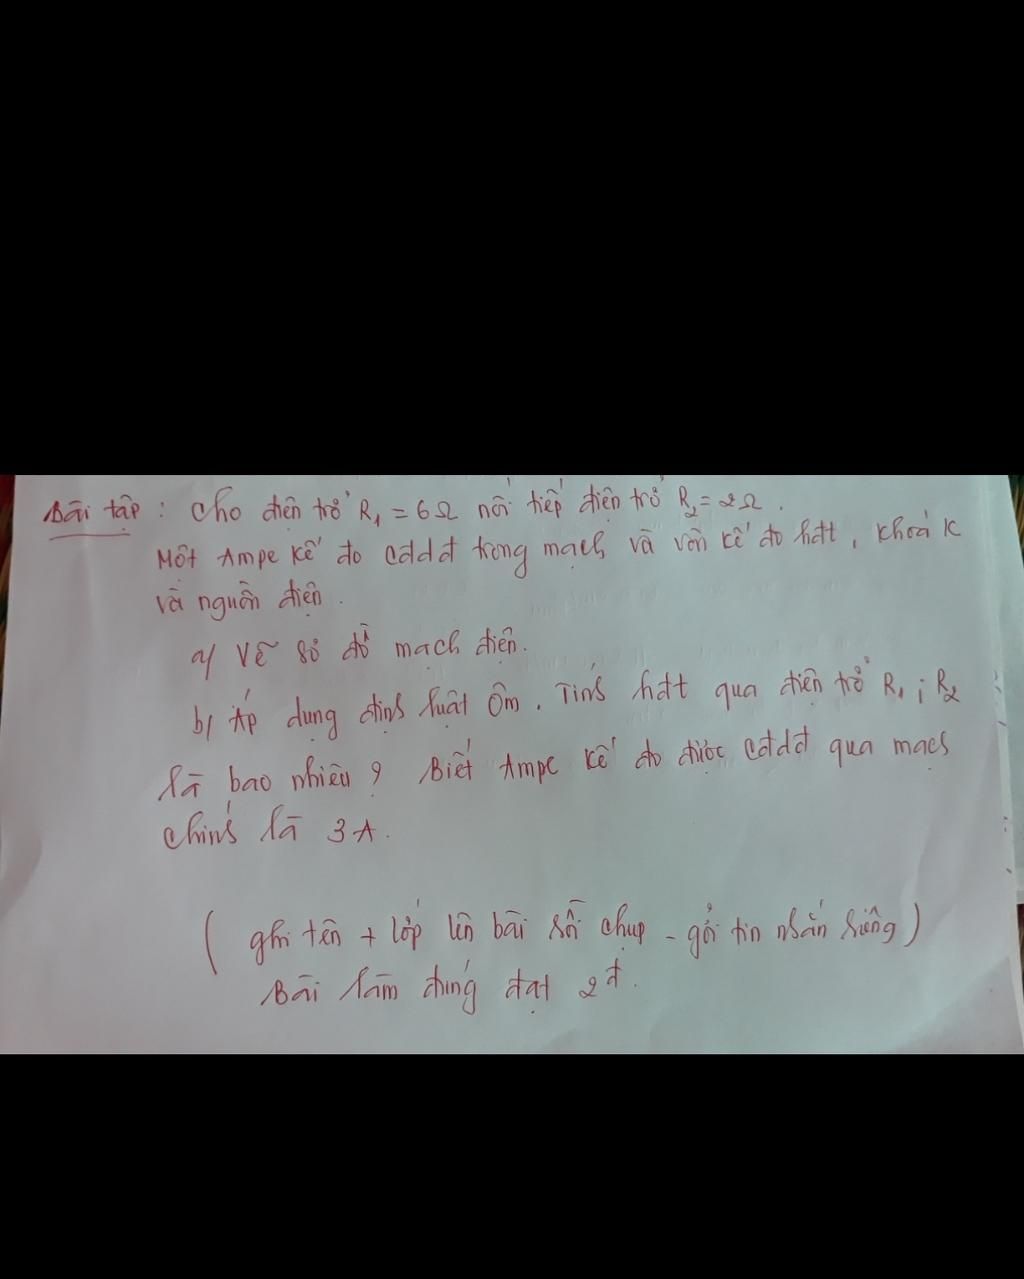 Bài tập : Cho điện trở R₁ = 6Ω nối tiếp điện trở R₂ = 2Ω.
Một Ampe kế đo cđdđ trong mạch và vôn kế đo hđt, khoá K
và nguồn điện.
a/ Vẽ sơ đồ mạch điện.
b/ Áp dụng định luật Ôm. Tính hđt qua điện trở R₁ ; R₂
là bao nhiêu ? Biết Ampe kế đo được cđdđ qua mạch
chính là 3A.
( ghi tên + lớp lên bài rồi chụp - gởi tin nhắn riêng )
Bài làm đúng đạt 2đ.